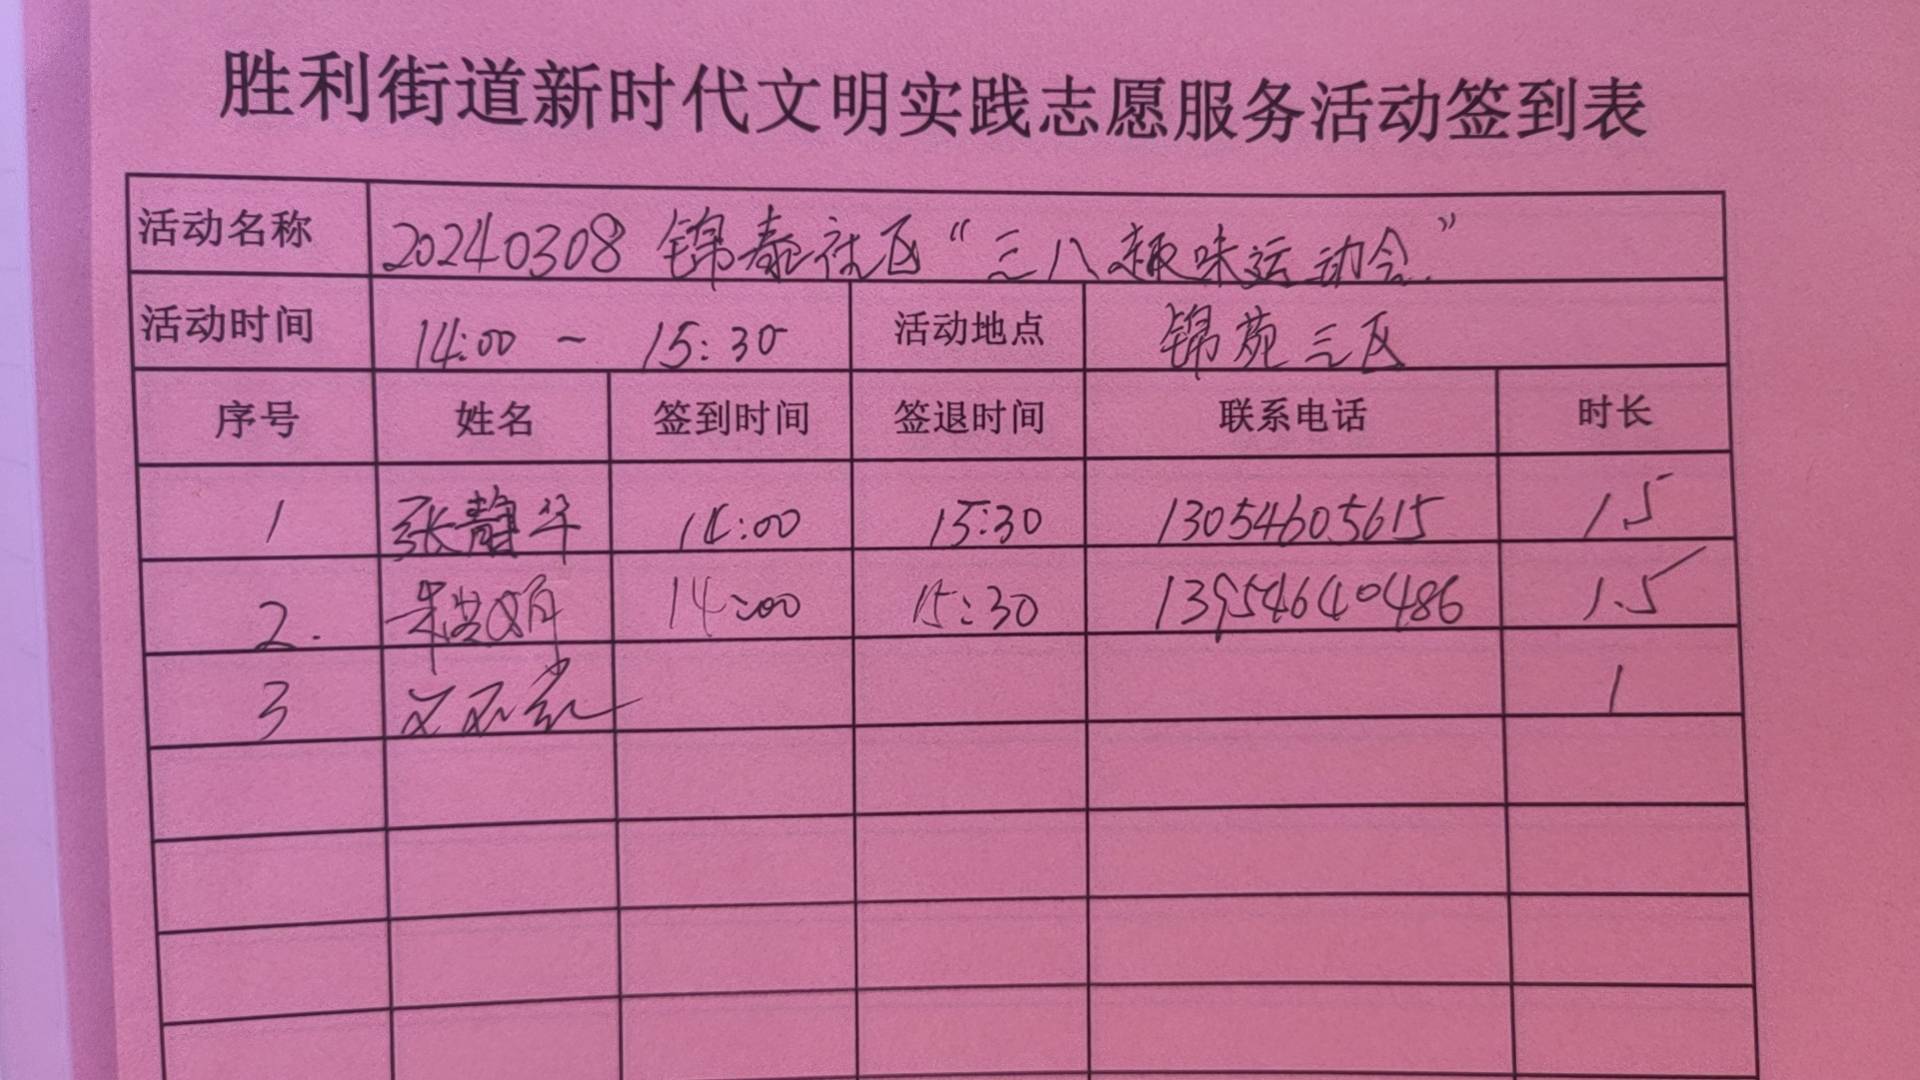 胜利街道新时代文明实践志愿服务活动签到表
活动名称 20240308 锦泰社区“三八趣味运动会”
活动时间 14:00 - 15:30 活动地点 锦苑三区
序号 姓名 签到时间 签退时间 联系电话 时长
1 张静华 14:00 15:30 13054605615 1.5
2. 14:00 15:30 13954640486 1.5
3 1